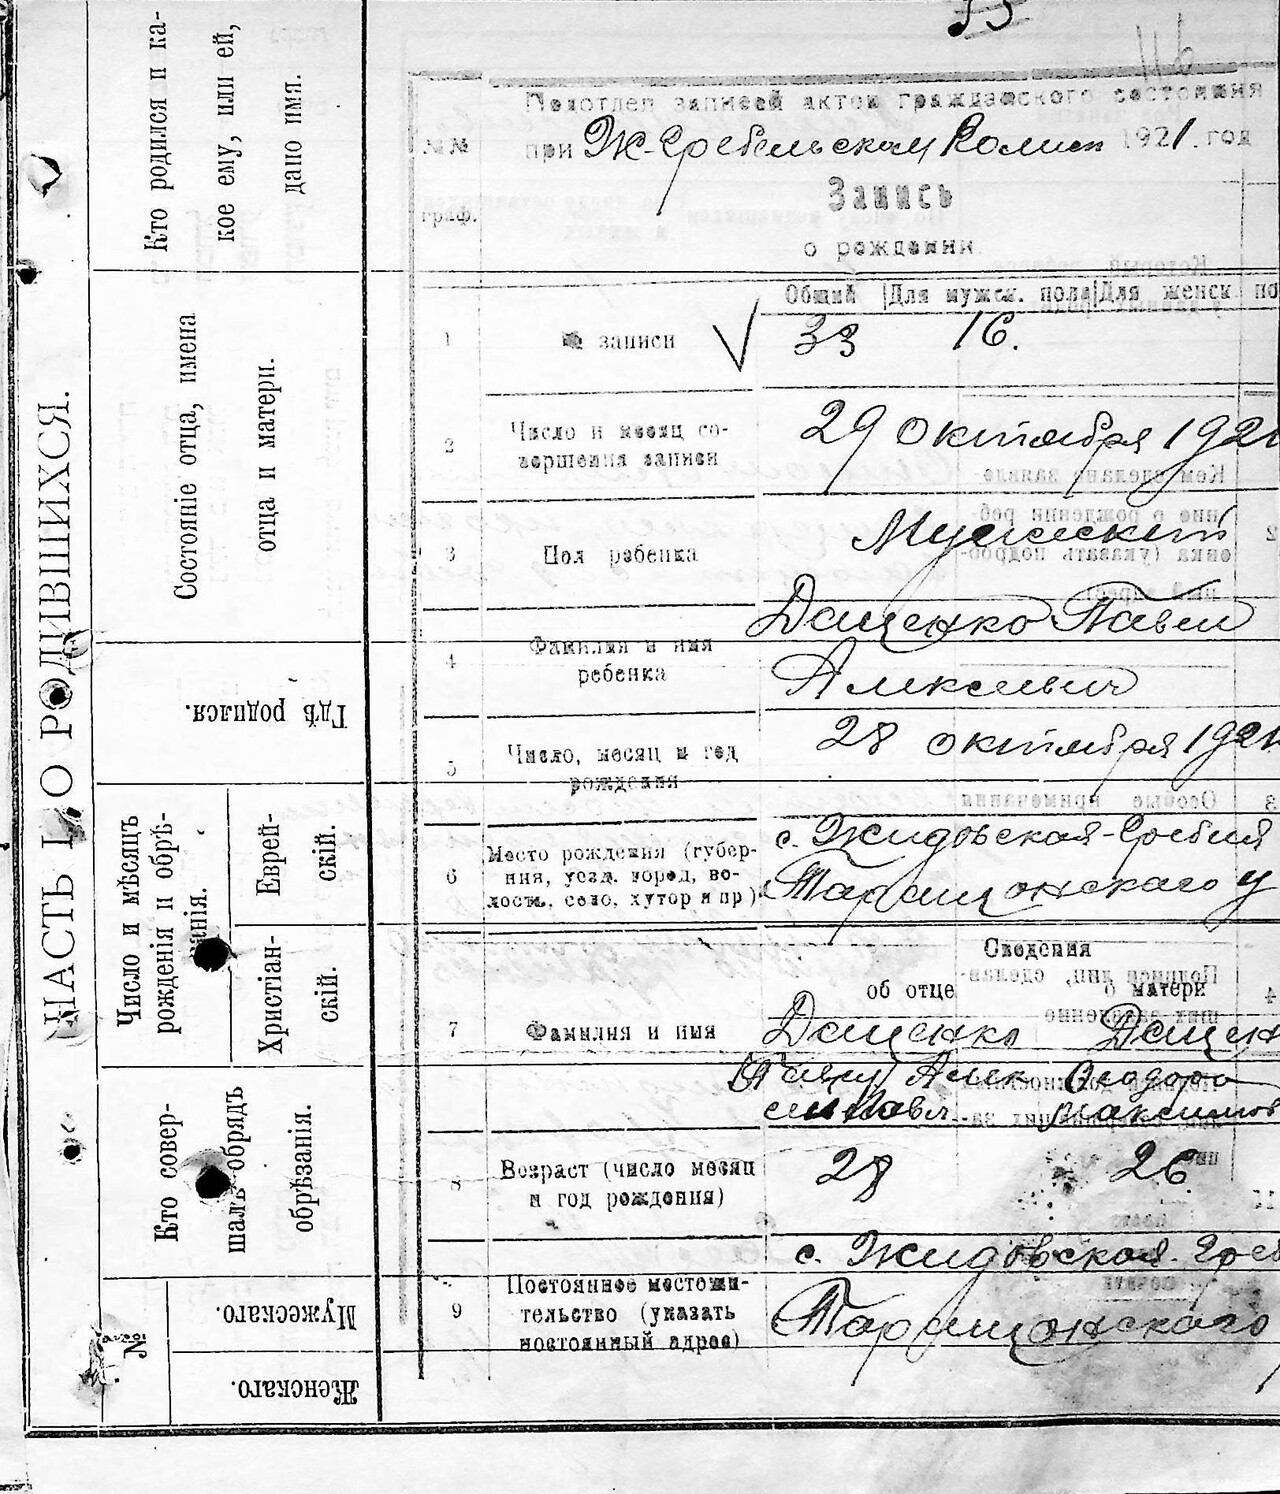 ЧАСТЬ I. О РОДИВШИХСЯ.
Кто родился и ка-
кое ему, или ей,
дано имя.
Состояніе отца, имена
отца и матери.
Гдѣ родился.
Число и мѣсяцъ
рожденія и обрѣ-
занія.
Еврей-
скій.
Христіан-
скій.
Кто совер-
шалъ обрядъ
обрѣзанія.
№
Мужескаго.
Женскаго.
Подотдел записей актов гражданского состояния
№№ при Ж-Гребельском 1921. год
Запись
граф.
о рождении.
Общий Для мужск. пола Для женск по
1 № записи 33 16.
2 Число и месяц со-
вершения записи
29 октября 1921
3 Пол ребенка Мужеский
4 Фамилия и имя
ребенка
Даценко Павел
Алексеевич
5 Число, месяц и год
рождения
28 октября 1921
6 Место рождения (губер-
ния, уезд, город, во-
лость, село, хутор и пр)
с. Жидовская-Гребля
Таращанскаго у
Сведения
об отце о матери
7 Фамилия и имя Даценко Даценк
Алек Феодора
Павл. Максимов
8 Возраст (число месяц
и год рождения)
28 26
9 Постоянное местожи-
тельство (указать
постоянный адрес)
с. Жидовская-Греб
Таращанскаго